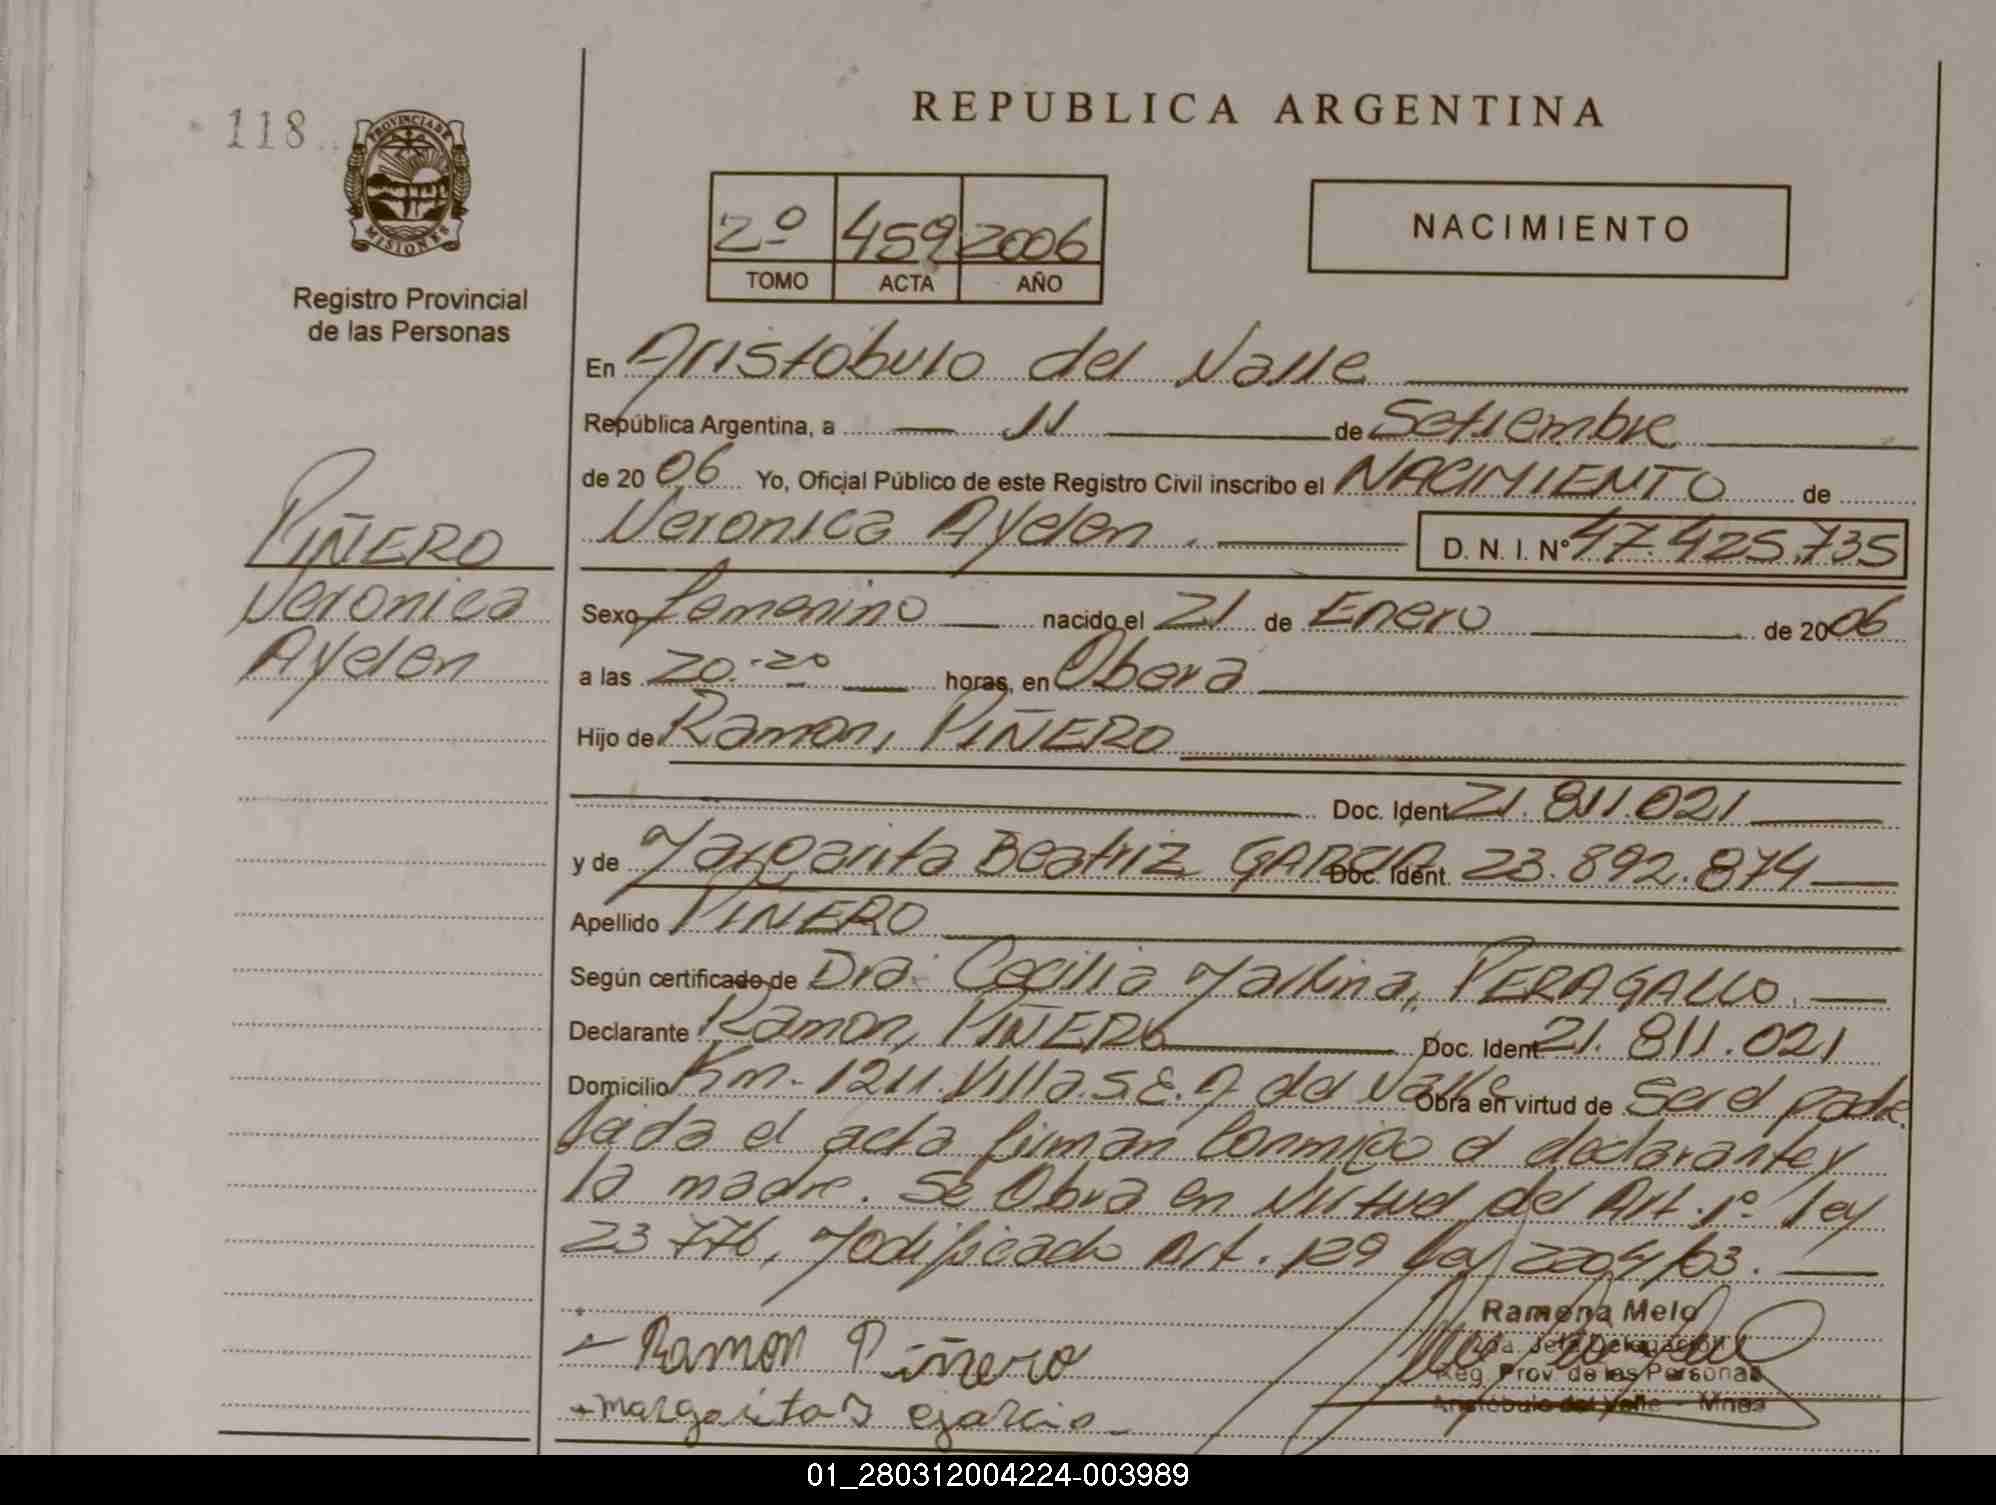 118
PROVINCIA DE
MISIONES
Registro Provincial
de las Personas
REPUBLICA ARGENTINA
2º 459 2006
TOMO ACTA AÑO
NACIMIENTO
En Aristobulo del Valle
República Argentina, a 11 de Setiembre
de 2006 Yo, Oficial Público de este Registro Civil inscribo el NACIMIENTO de
Veronica Ayelen. D. N. I. Nº 47.425.735
PIÑERO
Veronica
Ayelen
Sexo femenino nacido el 21 de Enero de 2006
a las 20:20 horas, en Obera
Hijo de Ramon, PIÑERO
Doc. Ident 21.811.021
y de Margarita Beatriz GARCIA Doc. Ident. 23.892.874
Apellido PIÑERO
Según certificado de Dra: Cecilia Marina, PERAGALLO.
Declarante Ramon, PIÑERO Doc. Ident 21.811.021
Domicilio Km. 1211. Villa S. E. A del Valle Obra en virtud de Ser el padre.
Leida el acta firman conmigo el declarante y
la madre. Se Obra en virtud del Art. 1º ley
23776, Modificado Art. 129 ley 2204/03.
Ramon Piñero
Margarita garcia
Ramona Melo
2da. Jefa Delegación
Reg. Prov. de las Personas
Aristobulo del Valle - Mnes
01_280312004224-003989